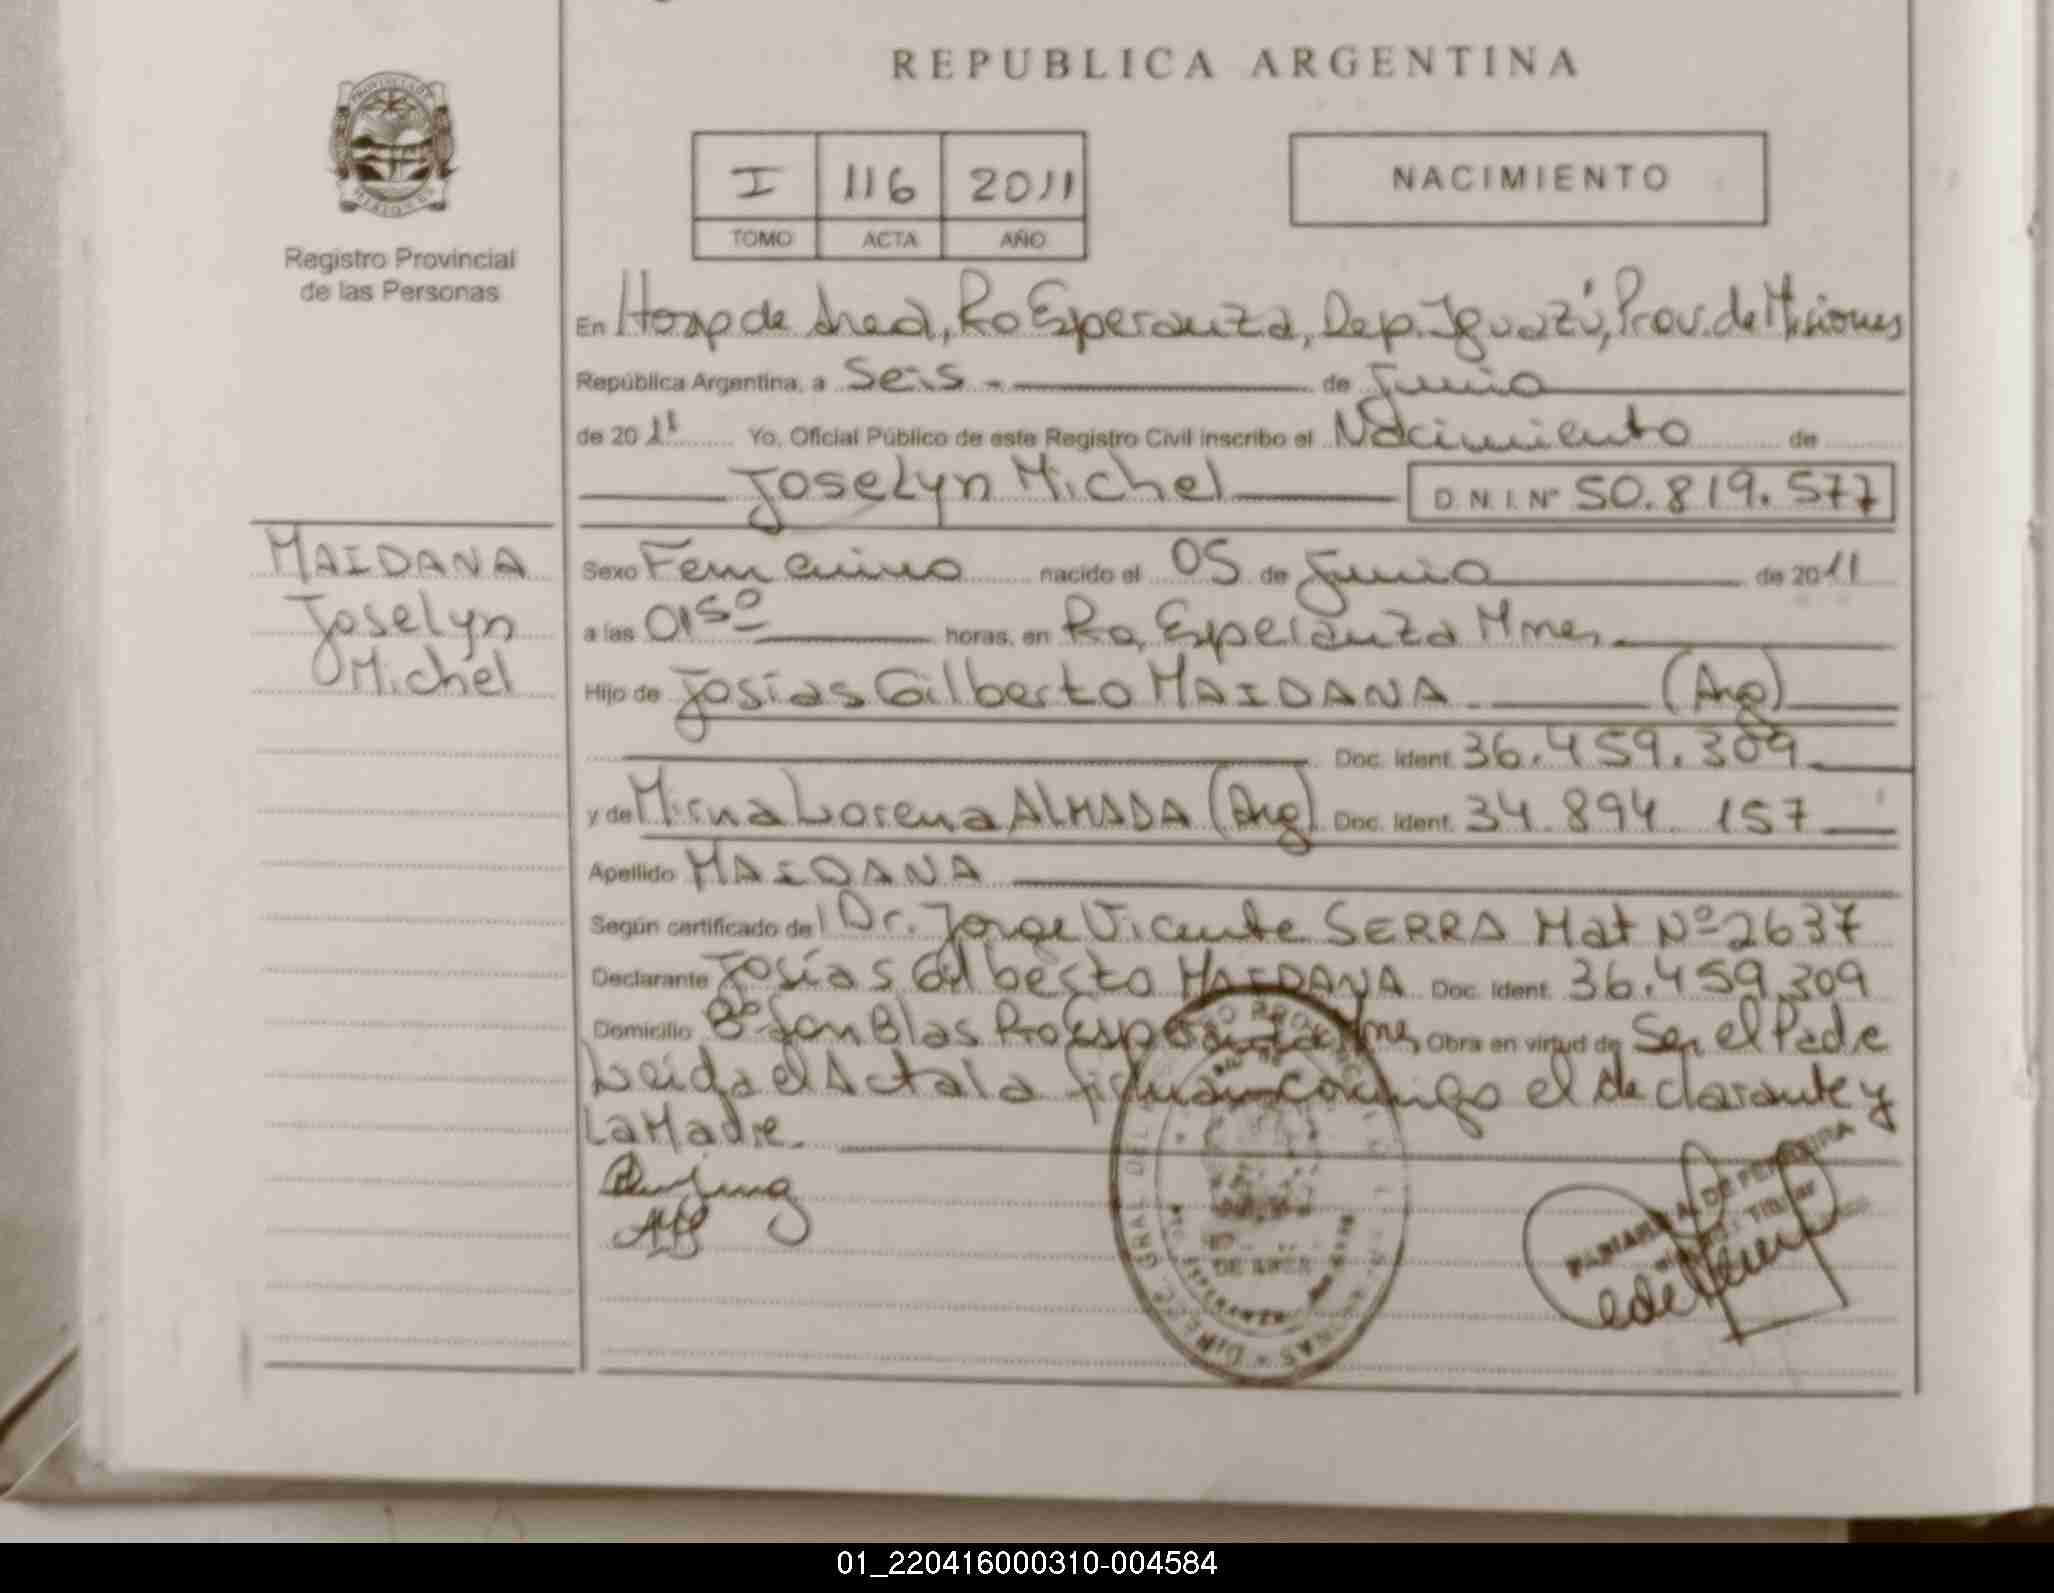 REPUBLICA ARGENTINA
I 116 2011
TOMO ACTA AÑO
NACIMIENTO
Registro Provincial
de las Personas
En Hosp de Area, Pto Esperanza, Dep. Iguazú, Prov. de Misiones
República Argentina, a Seis.- de Junio
de 2011 Yo, Oficial Público de este Registro Civil inscribo el Nacimiento de
Joselyn Michel D.N.I. Nº 50.819.577
MAIDANA
Joselyn
Michel
Sexo Femenino nacido el 05 de Junio de 2011
a las 01⁵⁰ horas, en Pto Esperanza Mnes.
Hijo de Josías Gilberto MAIDANA (Arg)
Doc. Ident. 36.459.309
y de Mirna Lorena ALMADA (Arg) Doc. Ident. 34.894.157
Apellido MAIDANA
Según certificado de Dr. Jorge Vicente SERRA Mat Nº 2637
Declarante Josías Gilberto MAIDANA Doc. Ident. 36.459.309
Domicilio Bº San Blas Pto Esperanza Mnes, Obra en virtud de Ser el Padre
Leida el Acta la firman conmigo el declarante y
La Madre.
01_220416000310-004584